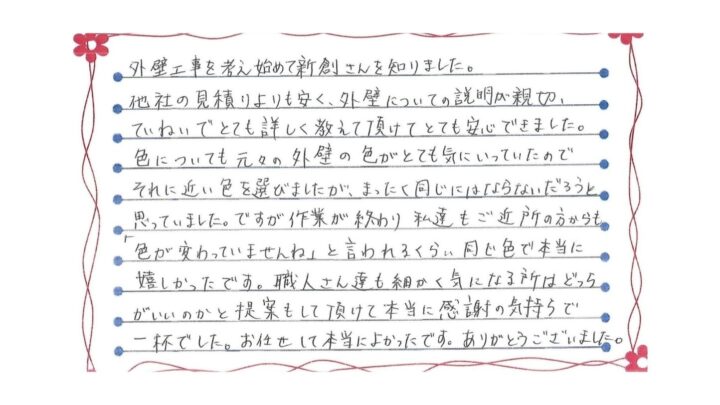 外壁工事を考え始めて新創さんを知りました。
他社の見積りよりも安く、外壁についての説明が親切、
ていねいでとても詳しく教えて頂けてとても安心できました。
色についても元々の外壁の色がとても気にいっていたので
それに近い色を選びましたが、まったく同じにはならないだろうと
思っていました。ですが作業が終わり私達もご近所の方からも
「色が変わっていませんね」と言われるくらい同じ色で本当に
嬉しかったです。職人さん達も細かく気になる所はどっち
がいいのかと提案もして頂けて本当に感謝の気持ちで
一杯でした。お任せして本当によかったです。ありがとうございました。